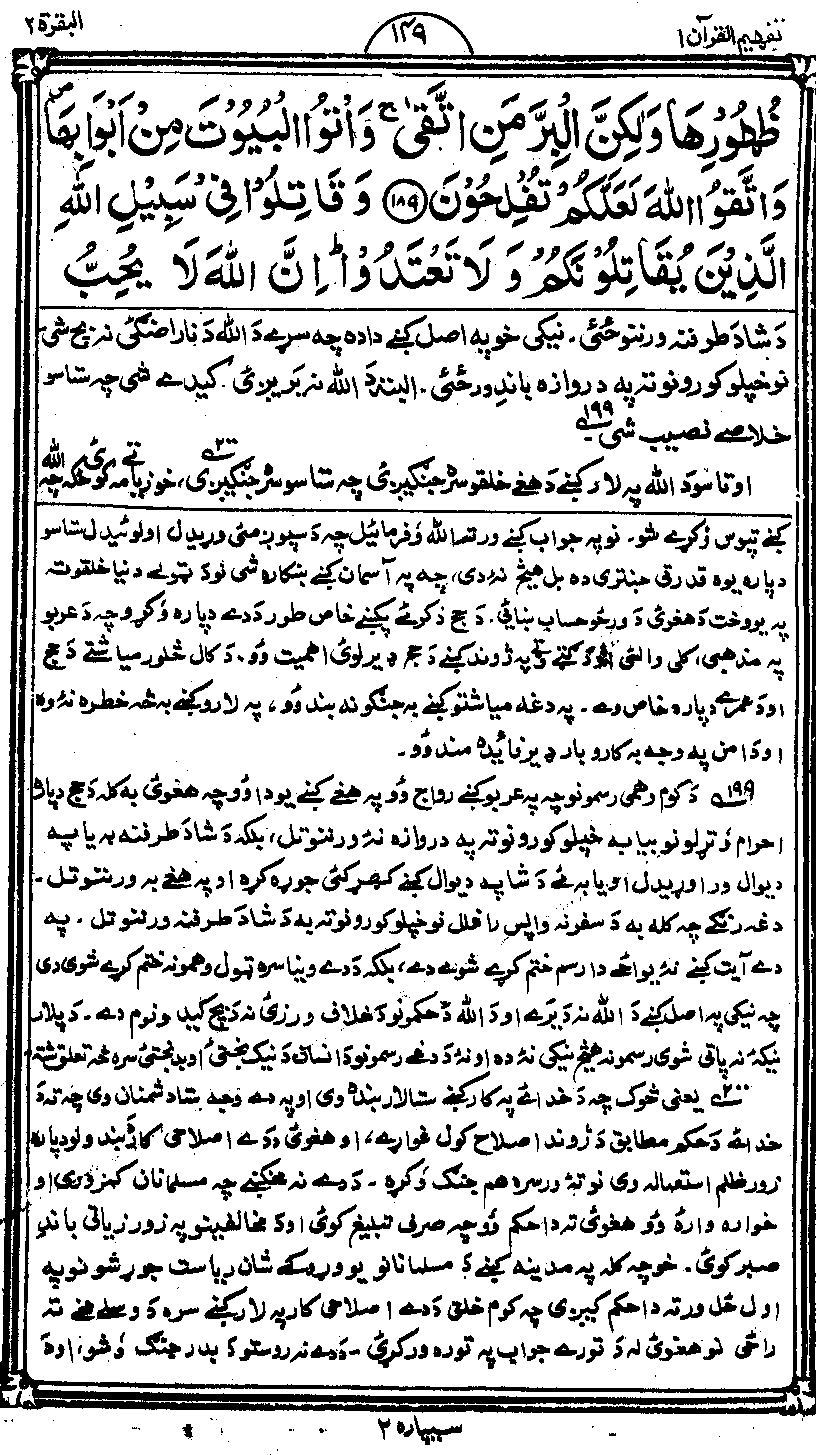 تفهيم القرآن ۱
۱۴۹
البقرة ۲
ظُهُوْرِهَا وَلٰكِنَّ الْبِرَّ مَنِ اتَّقٰىۚ وَاْتُوا الْبُيُوْتَ مِنْ اَبْوَابِهَا
وَاتَّقُوا اللهَ لَعَلَّكُمْ تُفْلِحُوْنَ ۱۸۹ وَقَاتِلُوْا فِيْ سَبِيْلِ اللهِ
الَّذِيْنَ يُقَاتِلُوْنَكُمْ وَلَا تَعْتَدُوْاؕ اِنَّ اللهَ لَا يُحِبُّ
دَ شا دَ طرفنه ورننوځئ. نيکي خو په اصل کښے دا ده چه سړے دَ الله دَ ناراضګئ نه بچ شي
نو خپلو کورونو ته په دروازه باندِ ورځئ. البته دَ الله نه يريږئ کيدے شي چه ستاسو
خلاصے نصيب شي ۱۹۹
او تاسو دَ الله په لار کښے دَ هغے خلقو سره جنګيږئ چه ستاسو سره جنګيږي، ۲۰۰ خو زياتے مه کوئ ځکه چه الله
کښے تپوس وُکړے شو. نو په جواب کښے ورته الله وَفرمائيل چه دَ سپوږمئ وړيدل او لوئيدل ستاسو
دپاره يوه قدرتي جنتري ده بل هيڅ نۀ دي، چه په آسمان کښے ښکاره شي نو دَ ټولے دنيا خلقو ته
په يو وخت دَ هغوئ دَ ورځو حساب ښائي. دَ حج ذکر ئے پکښے خاص طور دَ دے دپاره وُکړو چه دَ عربو
په مذهبي، کلي والئ او په ژوند کښے دَ حج ډير لوئ اهميت وُو. دَ کال څلور مياشتے دَ حج
او دَ عمرے دپاره خاص وے. په دغه مياشتو کښے به جنګونه بند وُو، په لارو کښے به څه خطره نۀ وه
او دَ امن په وجه به کاروبار ډير فائده مند وُو.
۱۹۹ دَ کوم وهمي رسمونو چه په عربو کښے رواج وُو په هغے کښے يو دا وُو چه هغوئ به کله دَ حج دپاره
احرام وَتړلو نو بيا به خپلو کورونو ته په دروازه نۀ ورننوتل، بلکه دَ شا دَ طرفنه به يا په
ديوال ور اوړيدل او يا به ئے دَ شا په ديوال کښے کهړکئ جوړه کړه او په هغے به ورننوتل.
دغه رنګے چه کله به دَ سفر نه واپس راغلل نو خپلو کورونو ته به دَ شا دَ طرفنه ورننوتل. په
دے آيت کښے نۀ يواځے دا رسم ختم کړے شوے دے، بلکه دَ دے وينا سره ټول وهمونه ختم کړے شوي دي
چه نيکي په اصل کښے دَ الله نه دَ يرے او دَ الله دَ حکمونو دَ خلاف ورزئ نه دَ بچ کيدو نوم دے. دَ پلار
نيکۀ نه پاتي شوي رسمونه هيڅ نيکي نۀ ده او نۀ دَ دغے رسمونو دَ انسان دَ نيک بختئ او بدبختئ سره څه تعلق شته
۲۰۰ يعني څوک چه دَ خدائے په کار کښے ستا لار بنده وي او په دے وجه ستا دشمنان وي چه تۀ دَ
خدائے دَ حکم مطابق دَ ژوند اصلاح کول غواړے، او هغوئ دَ دے اصلاحي کار دَ بندولو دپاره
زور ظلم استعمالوي نو تۀ ورسره هم جنګ وُکړه. دَ دے نه مخکښے چه مسلمانان کمزوري او
خوارۀ وارۀ وُو هغوئ ته دا حکم وُو چه صرف تبليغ کوئ او دَ مخالفينو په زور زياتي باندِ
صبر کوئ. خو چه کله په مدينه کښے دَ مسلمانانو يو وړوکے شان رياست جوړ شو نو په
اول ځل ورته دا حکم کيږي چه کوم خلق دَ دے اصلاحي کار په لار کښے سره دَ وسلے مخے ته
راځي نو هغوئ له دَ تورے جواب په توره ورکړئ. دَ دے نه روستو دَ بدر جنګ وَشو، او دَ
سيپاره ۲